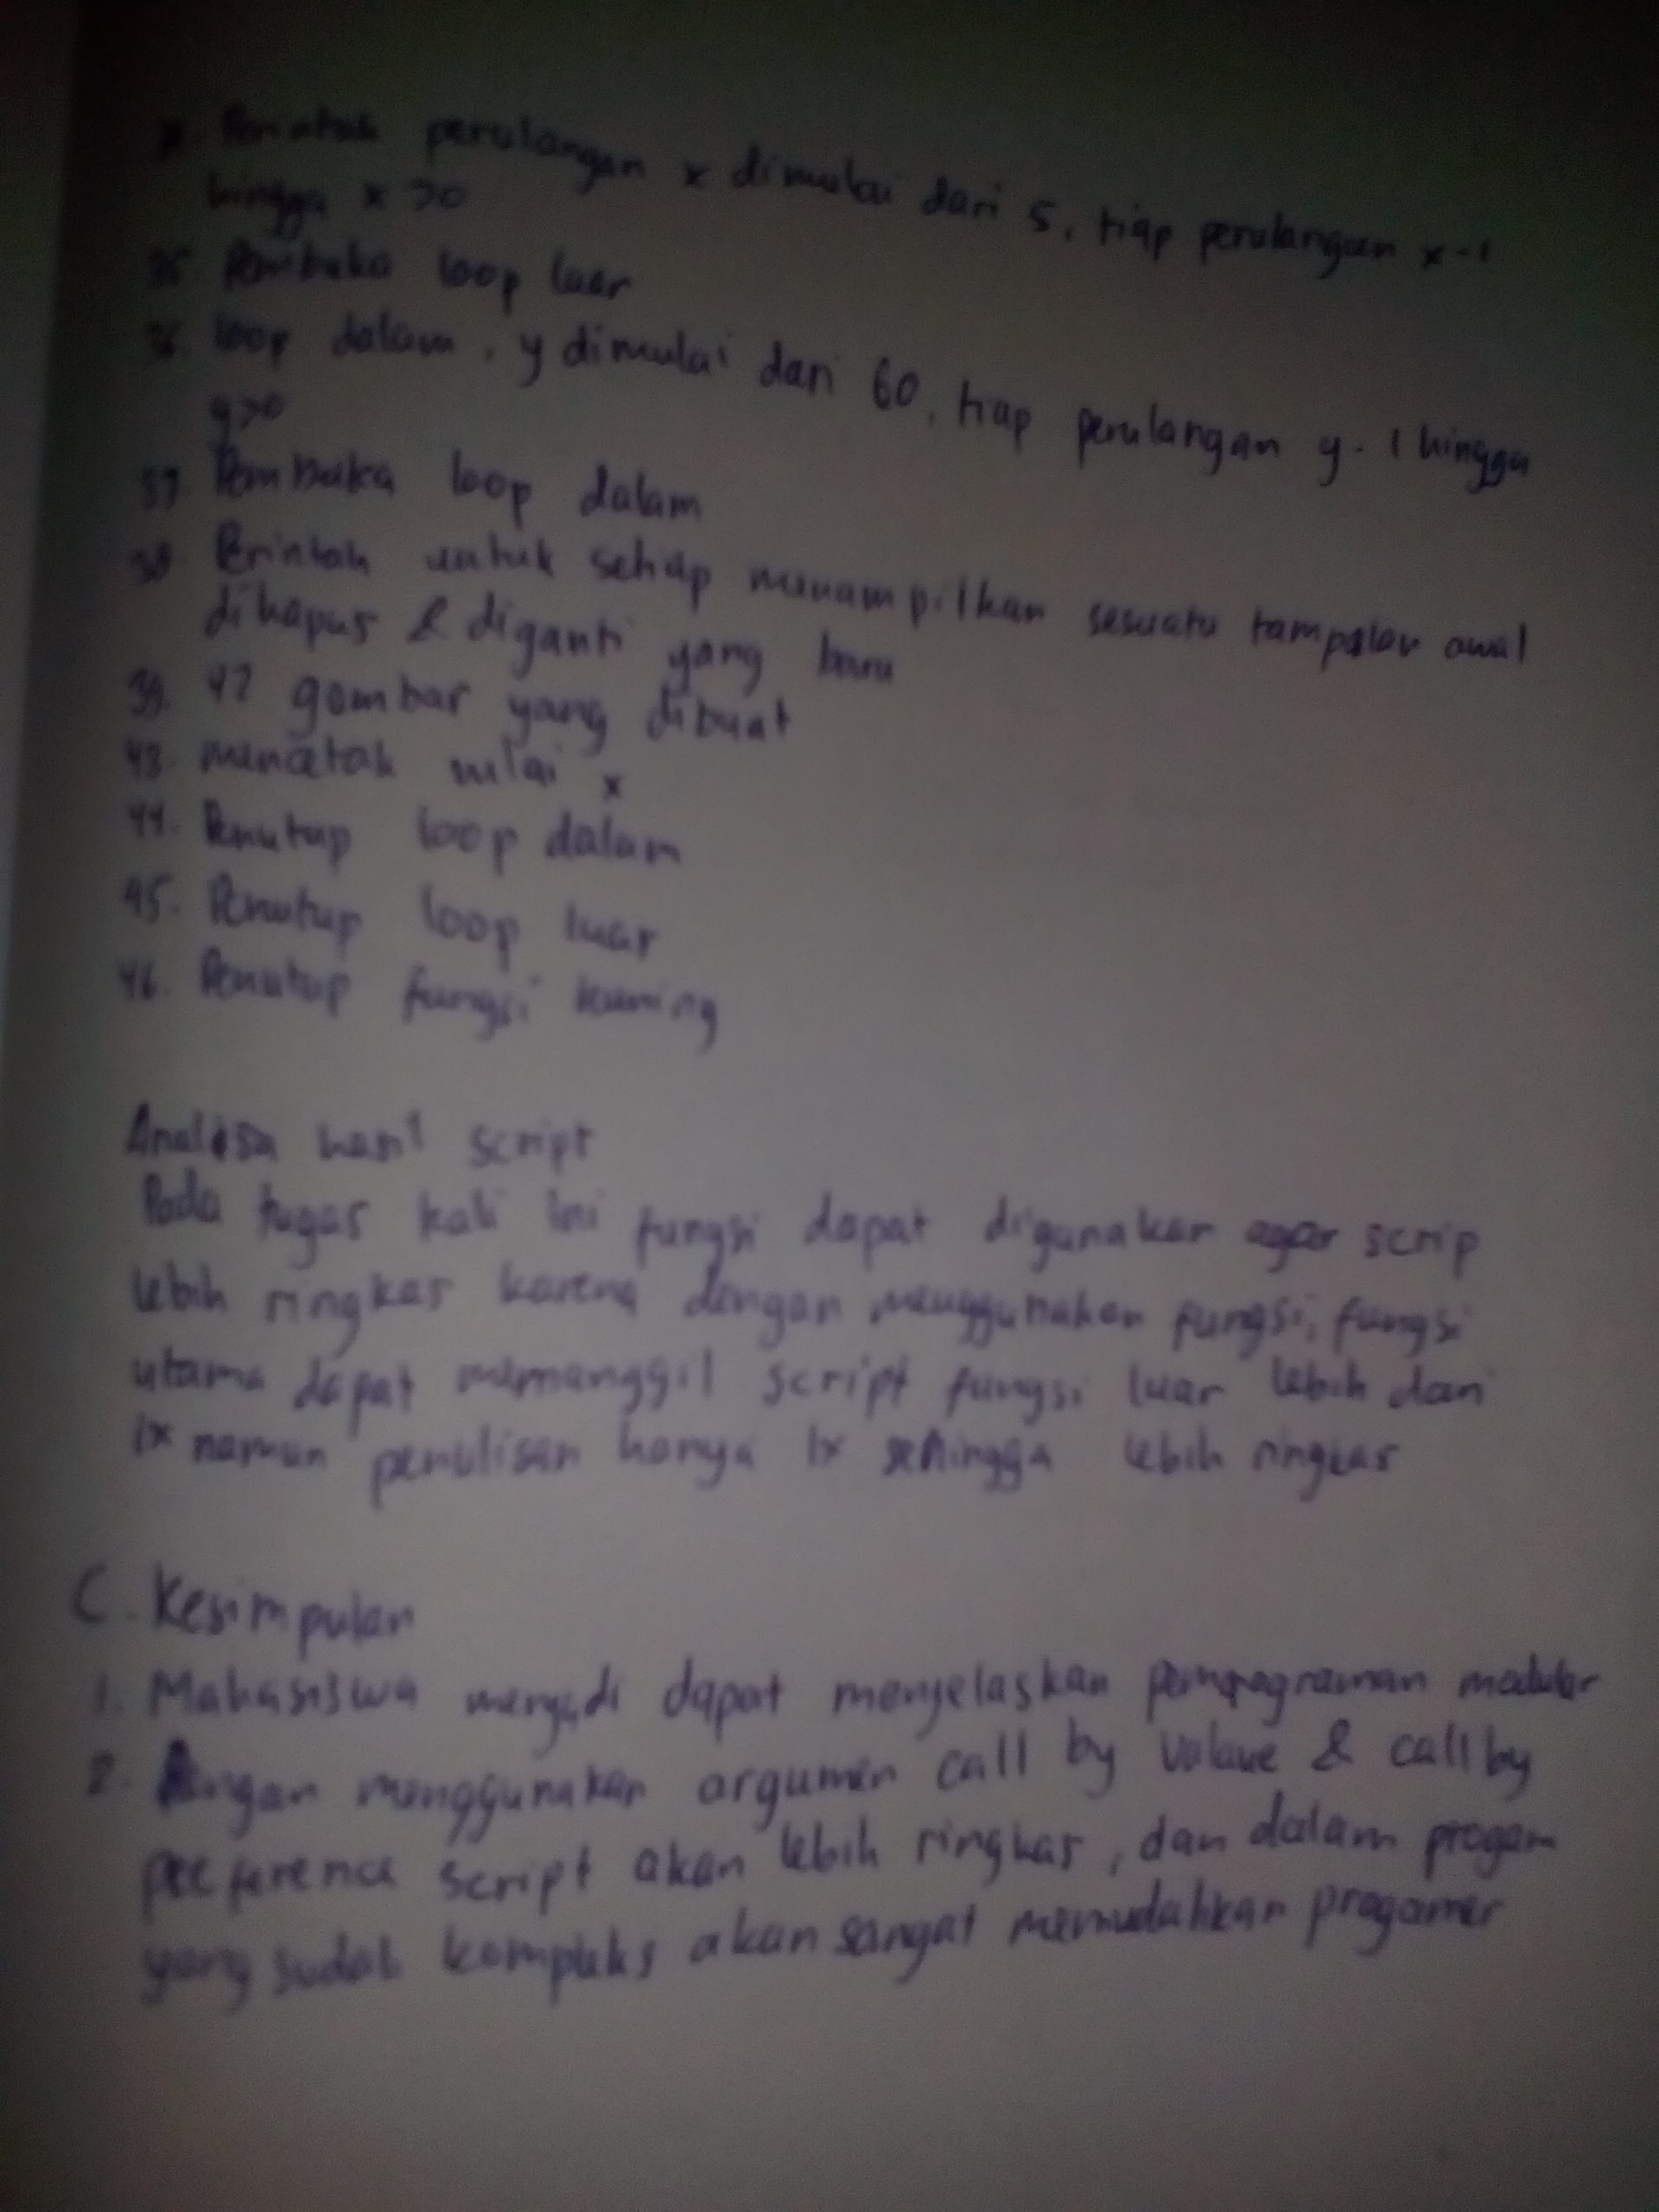 perulangan x dimulai dari 5, tiap perulangan x-1
hingga x >0
35. Pembuka loop luar
36. loop dalam, y dimulai dari 60, tiap perulangan y-1 hingga
y>0
37. Pembuka loop dalam
38. Perintah untuk setiap menampilkan sesuatu tampilan awal
dihapus & diganti yang baru
39. 42 gambar yang dibuat
43. mencetak nilai x
44. Penutup loop dalam
45. Penutup loop luar
46. Penutup fungsi kuning
Analisa hasil script
Pada tugas kali ini fungsi dapat digunakan agar scrip
lebih ringkas karena dengan menggunakan fungsi, fungsi
utama dapat memanggil script fungsi luar lebih dari
1x namun penulisan hanya 1x sehingga lebih ringkas
C. Kesimpulan
1. Mahasiswa menjadi dapat menjelaskan modular
2. Dengan menggunakan argumen call by & call by
script akan lebih ringkas, dan dalam progam
yang sudah kompleks akan sangat memudahkan progamer